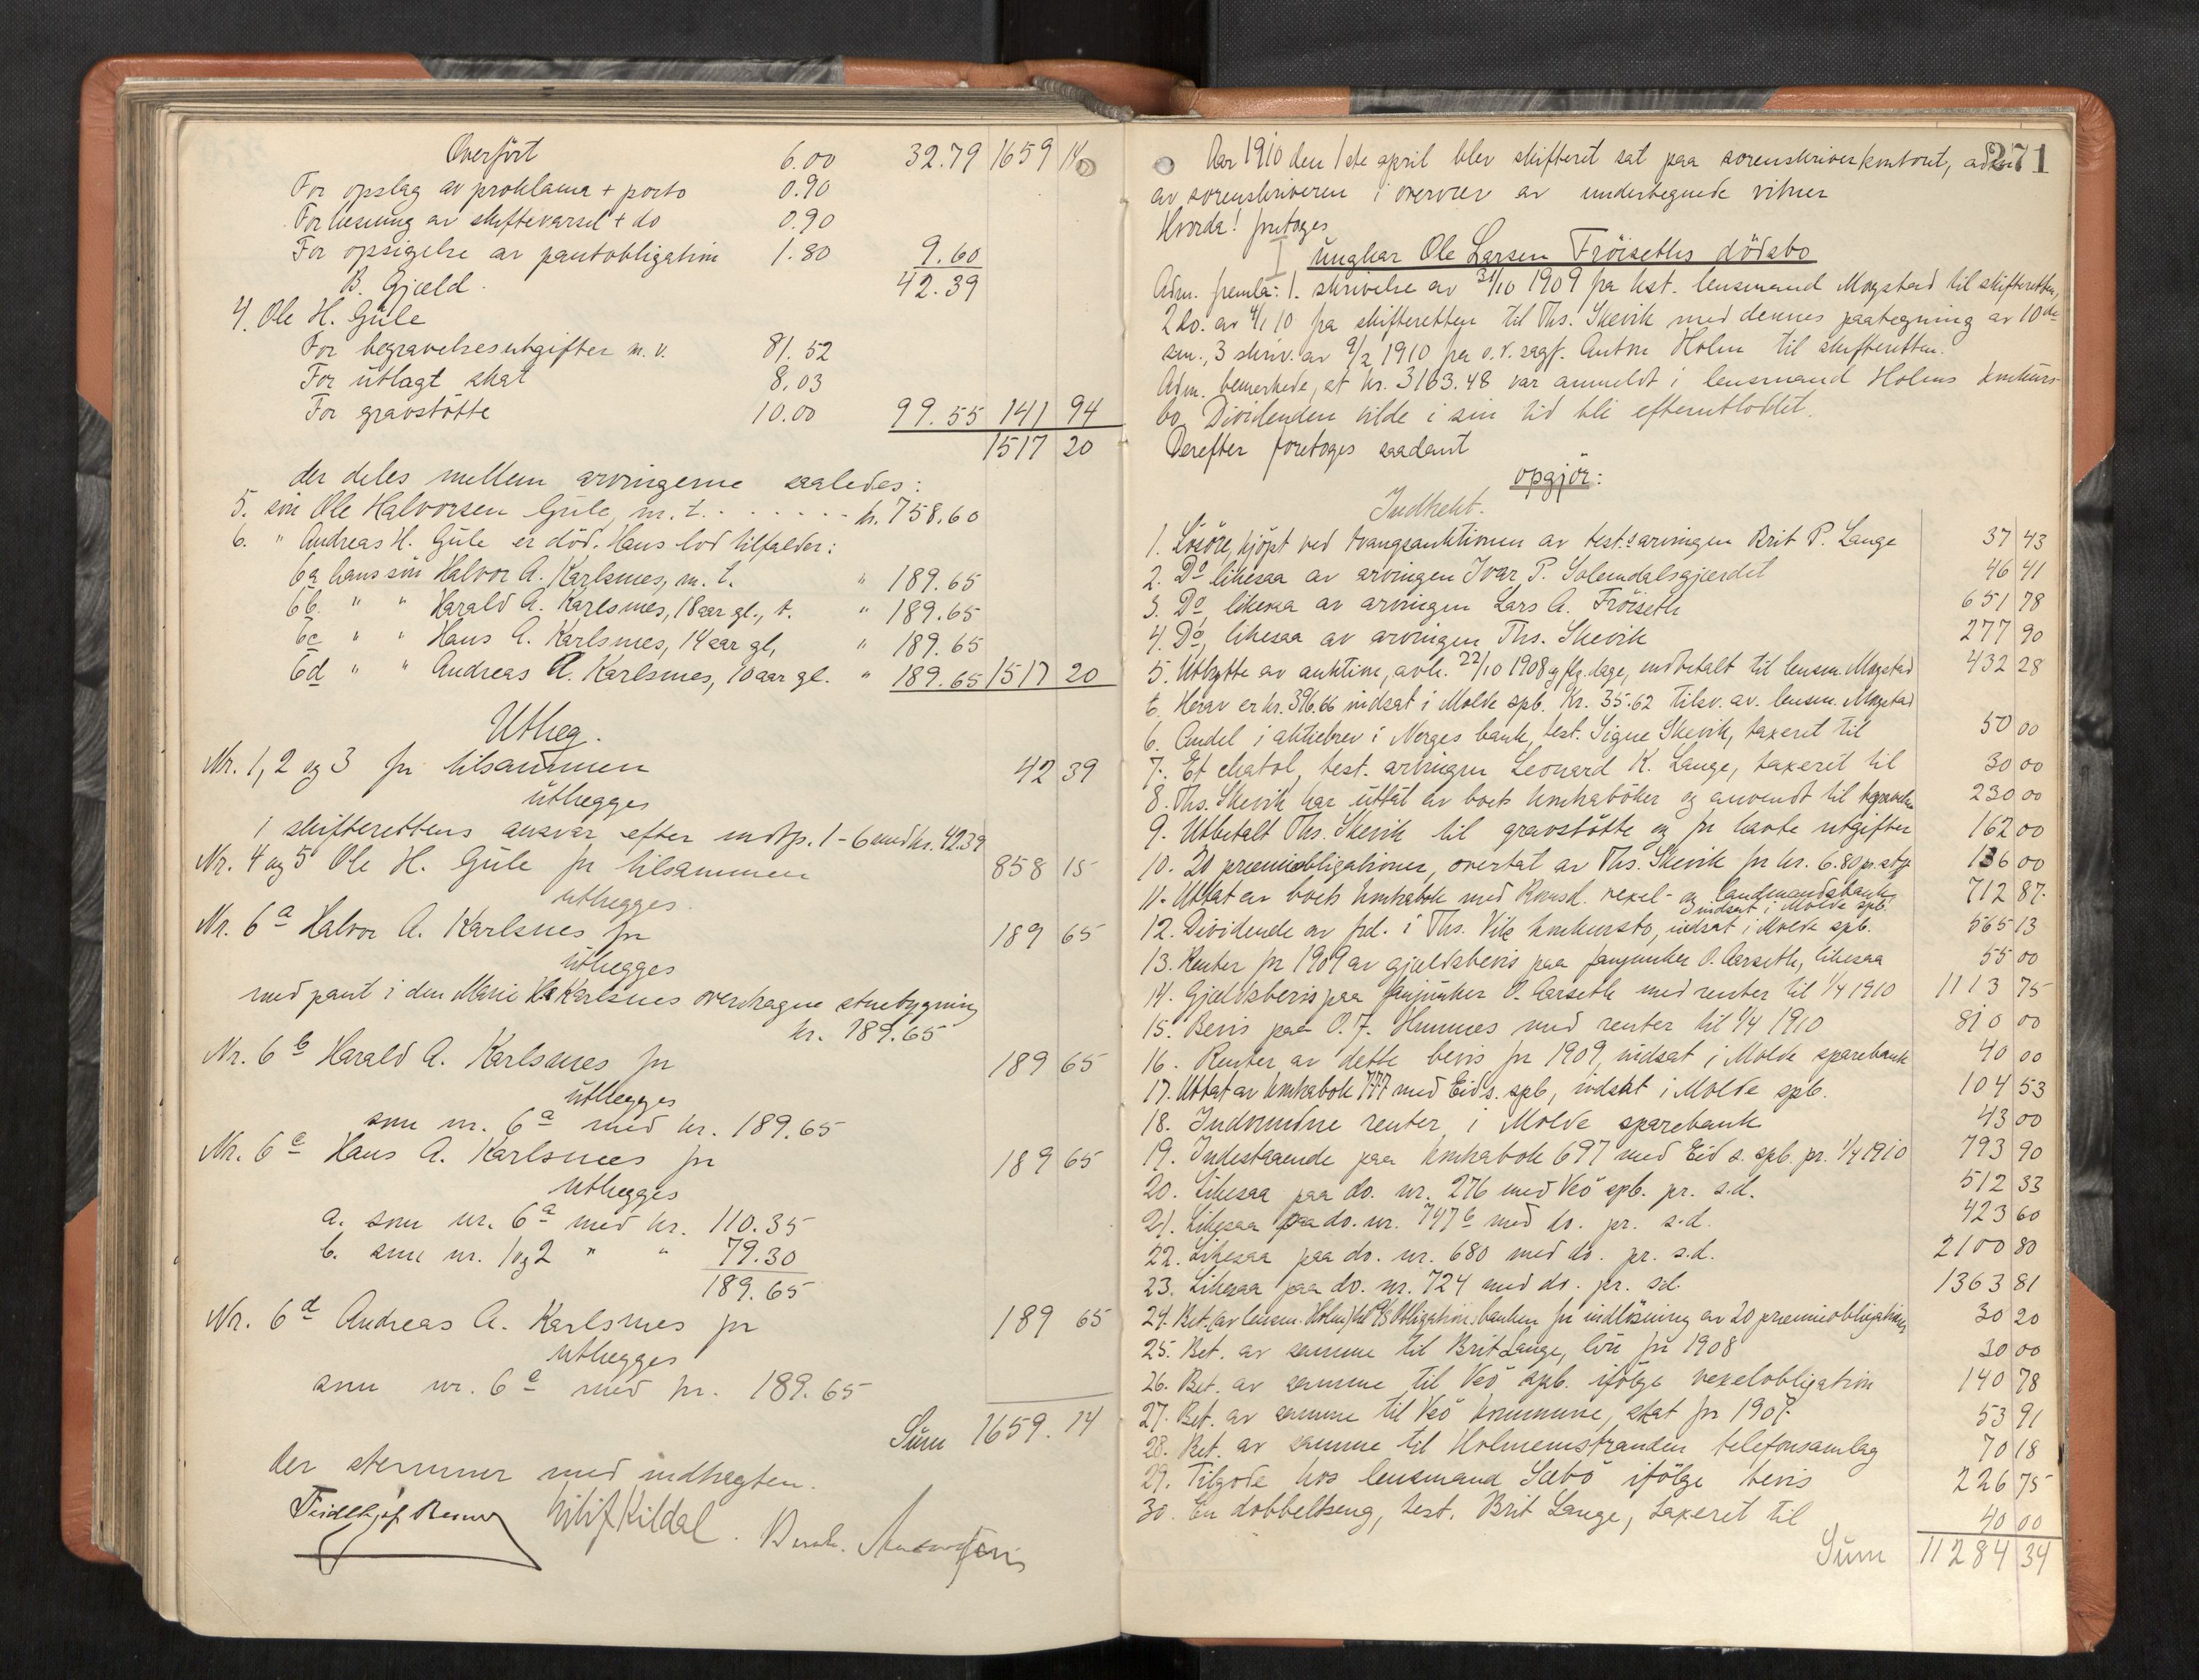 Overført 6.00 32.79 1659 14
For opslag av proklama + porto 0.90
For læsning av skiftevarsel + do 0.90
For opsigelse av pantobligation 1.80 9.60
B. Gjæld. 42.39
4. Ole H. Gule
For begravelsesutgifter m. v. 81.52
For utlagt skat 8.03
For gravstøtte 10.00 99.55 141 94
1517 20
der deles mellem arvingerne saaledes:
5. søn Ole Halvorsen Gule, m. t. . . . . . . kr. 758.60
6. " Andreas H. Gule er død. Hans lod tilfalder:
6a hans søn Halvor A. Karlsnes, m. t. " 189.65
6b. " " Harald A. Karlsnes, 18 aar gl., t. " 189.65
6c " " Hans A. Karlsnes, 14 aar gl, " 189.65
6d " " Andreas A. Karlsnes, 10 aar gl. " 189.65 1517 20
Utlæg.
Nr. 1, 2 og 3 for tilsammen 42 39
utlægges
i skifterettens ansvar efter indtp. 1-6 med kr. 42.39
Nr. 4 og 5 Ole H. Gule for tilsammen 858 15
utlægges.
Nr. 6a Halvor A. Karlsnes for 189 65
utlægges
med pant i den Marie Karlsnes overdragne stuebygning
kr. 189.65
Nr. 6b Harald A. Karlsnes for 189 65
utlægges
som nr. 6a med kr. 189.65
Nr. 6c Hans A. Karlsnes for 189 65
utlægges
a. som nr. 6a med kr. 110.35
b. som nr. 1 og 2 " " 79.30
189.65
Nr. 6d Andreas A. Karlsnes for 189 65
utlægges
som nr. 6c med kr. 189.65
Sum 1659.14
der stemmer med indtægten.
Kildal.
271
Aar 1910 den 1ste april blev skifteret sat paa sorenskriverkontoret, adm.
av sorenskriveren i overvær av undertegnede vitner
Hvorda! foretoges
Ungkar Ole Larsen Frøiseths dødsbo
Adm. fremla: 1. skrivelse av 31/10 1909 fra kst. lensmand Mogstad til skifteretten,
2 do. av 4/1 10 fra skifteretten til Ths. Skevik med dennes paategning av 10de
sm., 3 skriv. av 9/2 1910 fra o.r.sagf. Anton Holm til skifteretten.
Adm. bemerkede, at kr. 3163.48 var anmeldt i lensmand Holms konkurs-
bo. Dividenden vilde i sin tid bli efterutloddet.
Derefter foretoges saadant
opgjør:
Indtækt.
1. Løsøre, kjøpt ved tvangsauktionen av test.s arvingen Brit P. Lange 37 43
2. Do likesaa av arvingen Ivar P. Solemdalsgjærdet 46 41
3. Do, likesaa av arvingen Lars A. Frøiseth 651 78
4. Do, likesaa av arvingen Ths. Skevik 277 90
5. Utbytte av auktion, avh. 22/10 1908 og flg. dage, indbetalt til lensm. Mogstad 432 28
Herav er kr. 396.66 indsat i Molde spb. Kr. 35.62 tilsv. av. lensm. Mogstad
6. Andel i aktiebrev i Norges bank, test. Signe Skevik, taxeret til 50 00
7. Et chatol, test. arvingen Leonard K. Lange, taxeret til 30 00
8. Ths. Skevik har uttat av boets kontrabøker og anvendt til begravelsen 230 00
9. Utbetalt Ths. Skevik til gravstøtte og for havte utgifter 162 00
10. 20 præmieobligationer, overtat av Ths. Skevik for kr. 6.80 pr. stk 136 00
11. Uttat av boets kontrabok med Romsd. vexel- og landmandsbank, indsat i Molde spb. 712 87
12. Dividende av frd. i Ths. Viks konkursbo, indsat i Molde spb. 565 13
13. Renter for 1909 av gjældsbevis paa fanjunker O. Aarseth, likesaa 55 00
14. Gjældsbevis paa fanjunker O. Aarseth med renter til 1/4 1910 1113 75
15. Bevis paa O. J. Humnes med renter til 1/4 1910 810 00
16. Renter av dette bevis for 1909, indsat i Molde sparebank 40 00
17. Uttat av kontrabok 777 med Eids. spb, indsat i Molde spb. 104 53
18. Indvundne renter i Molde sparebank 43 00
19. Indestaaende paa kontrabok 697 med Eid s. spb. pr. 1/4 1910 793 90
20. Likesaa paa do. nr. 276 med Veø spb. pr. s.d. 512 33
21. Likesaa paa do. nr. 747b med do. pr. s.d. 423 60
22. Likesaa paa do. nr. 680 med do. pr. s.d. 2100 80
23. Likesaa paa do. nr. 724 med do. pr. sd. 1363 81
24. Bet. (av lensm. Holm) til A/S Obligationsbanken for indløsning av 20 præmieobligationer 30 20
25. Bet. av samme til Brit Lange, løn for 1908 30 00
26. Bet. av samme til Veø spb. ifølge vexelobligation 140 78
27. Bet. av samme til Veø kommune, skat for 1907. 53 91
28. Bet. av samme til Holmemstranden telefonsamlag 70 18
29. Tilgode hos lensmand Sæbø ifølge bevis 226 75
30. En dobbeltseng, test. Brit Lange, taxeret til 40 00
Sum 11284 34